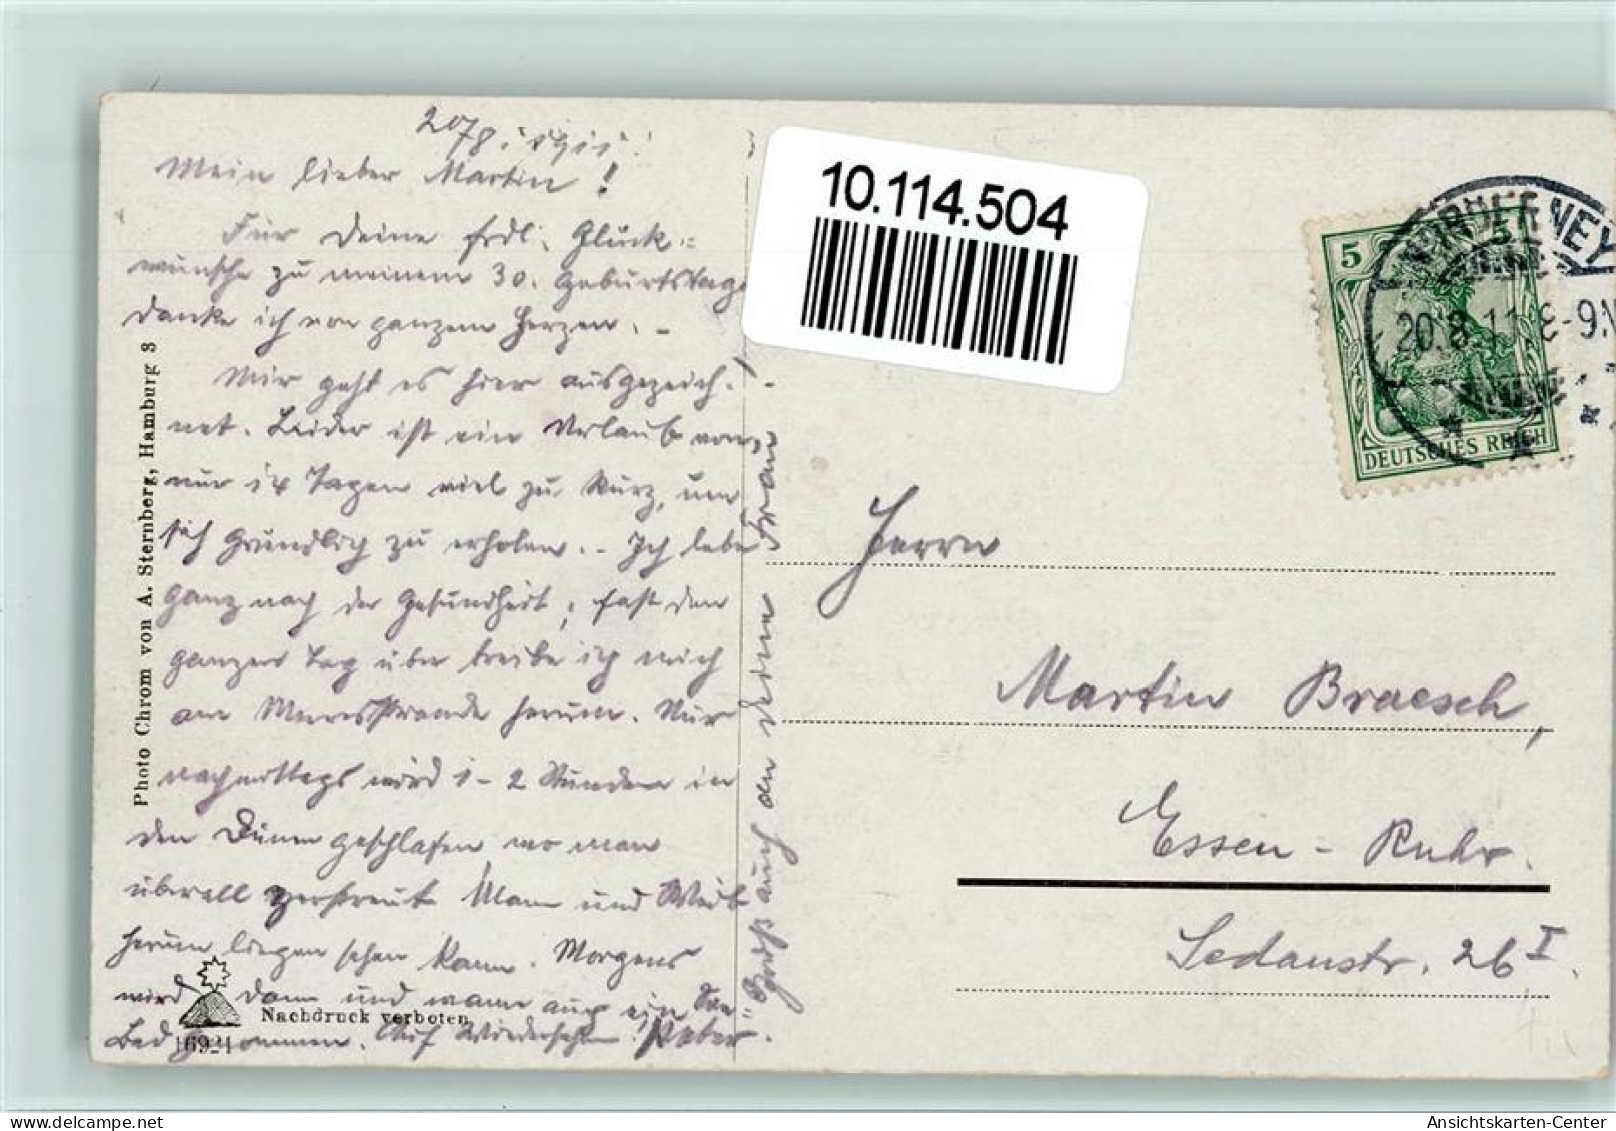 Mein lieber Martin!
Für Deine frdl. Glück-
wünsche zu meinem 30. Geburtstage
danke ich von ganzem Herzen. -
Mir geht es hier ausgezeich-
net. Leider ist ein Urlaub von
nur 14 Tagen viel zu kurz, um
sich gründlich zu erholen. - Ich lebe
ganz nach der Gesundheit; fast den
ganzen Tag über treibe ich mich
am Meeresstrande herum. Nur
nachmittags wird 1-2 Stunden in
den Dünen geschlafen, wo man
überall zerstreut Mann und Weib
herum liegen sehen kann. Morgens
wird dann und wann auch ein
Bad genommen. Auf Wiedersehn! Peter.
Grüß auch an Deine Frau
Photo Chrom von A. Sternberg, Hamburg 3
Nachdruck verboten
16921
10.114.504
NORDERNEY
20.8.11. 8-9
5
5
DEUTSCHES REICH
Herrn
Martin Braesch,
Essen - Ruhr.
Sedanstr. 26 I.
Ansichtskarten-Center